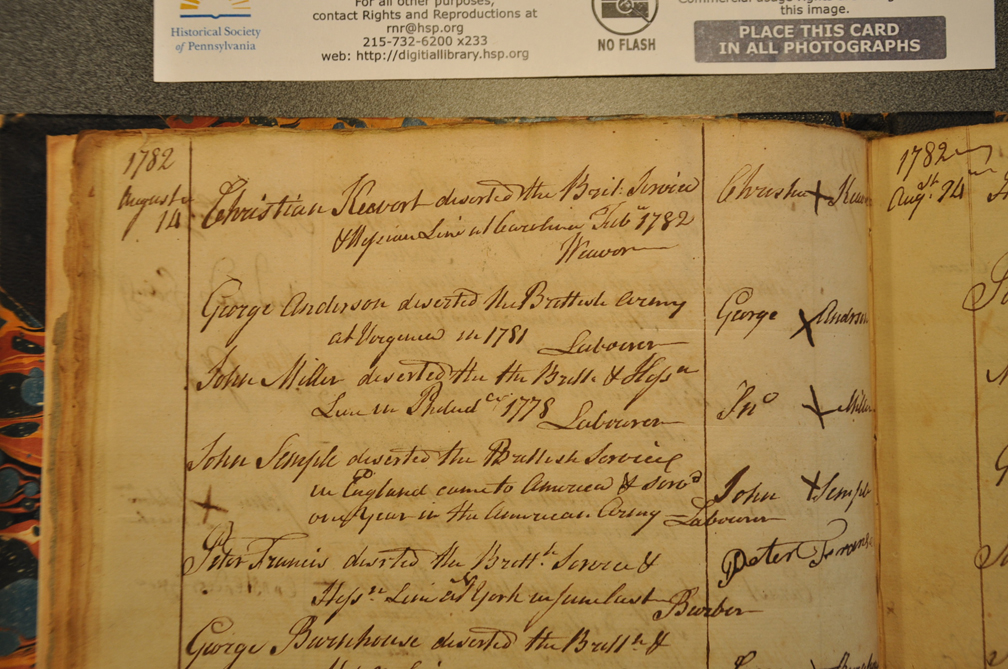 Historical Society
of Pennsylvania
For all other purposes,
contact Rights and Reproductions at
rnr@hsp.org
215-732-6200 x233
web: http://digitiallibrary.hsp.org
NO FLASH
this image.
PLACE THIS CARD
IN ALL PHOTOGRAPHS
1782
August
14
Christian Kewort deserted the Brit: Service
& Hessian Line at Carolina Feb 1782
Weavor
Christn X
George Anderson deserted the Brittish Army
at Virginia in 1781
Labourer
George X Anderson
John Miller deserted the the Britts & Hessn
Line in Philad 1778
Labourer
Jno X Miller
John Semple deserted the Brittish Service
in England came to America & serv'd
one year in the American Army - Labourer
X
John X Semple
Peter Francis deserted the Brittsh Service &
Hessn Line at N York in June last
Barber
Peter
George Burnhouse deserted the Brittsh &
1782
Augst 24